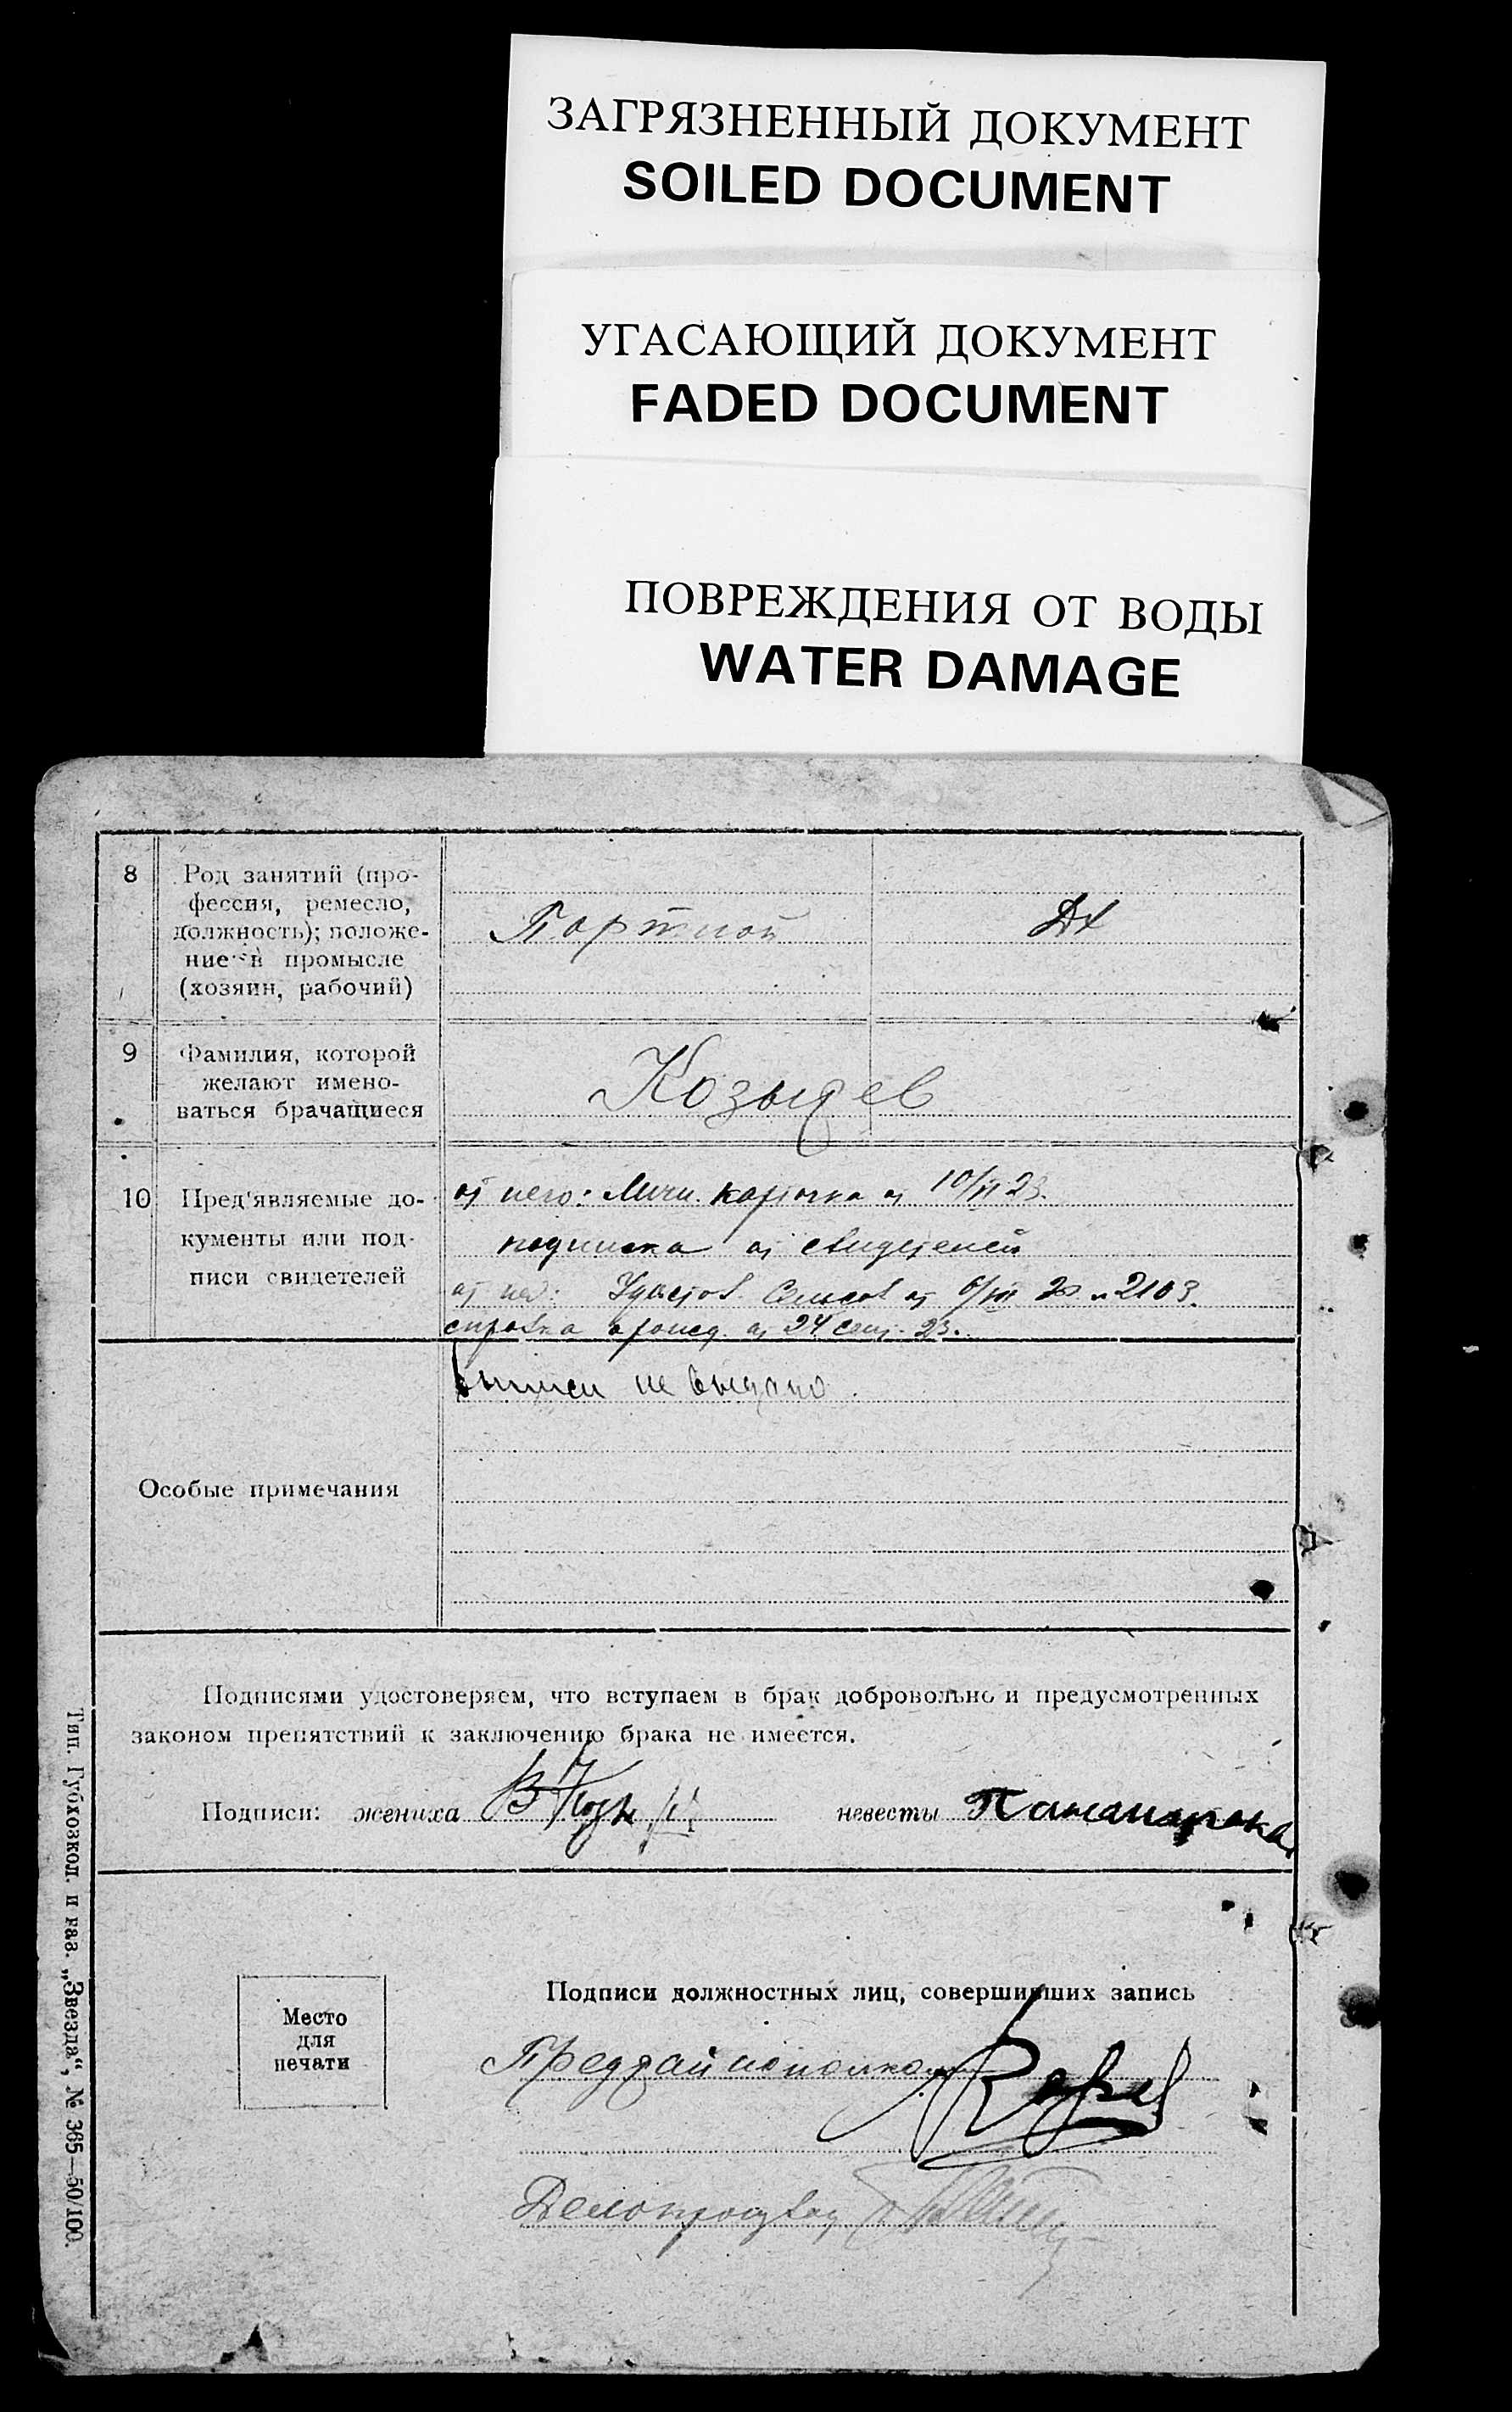 ЗАГРЯЗНЕННЫЙ ДОКУМЕНТ
SOILED DOCUMENT
УГАСАЮЩИЙ ДОКУМЕНТ
FADED DOCUMENT
ПОВРЕЖДЕНИЯ ОТ ВОДЫ
WATER DAMAGE
8
Род занятий (про-
фессия, ремесло,
должность); положе-
ние в промысле
(хозяин, рабочий)
Портной
Дх
9
Фамилия, которой
желают имено-
ваться брачащиеся
Козырев
10
Пред'являемые до-
кументы или под-
писи свидетелей
от него: Личн. карточка от 10/VI 23.
подписка от свидетелей
от нев: Удостов. Сельсов от 6/VII 23 № 2103.
справка о роисд. от 24 сент. 23.
Выписи не выдано.
Особые примечания
Подписями удостоверяем, что вступаем в брак добровольно и предусмотренных
законом препятствий к заключению брака не имеется.
Подписи: жениха
невесты
Подписи должностных лиц, совершивших запись
Место
для
печати
Предрайисполкома
Делопроизвод
Тип. Губхозкол. и газ. „Звезда“, № 365—50/100.